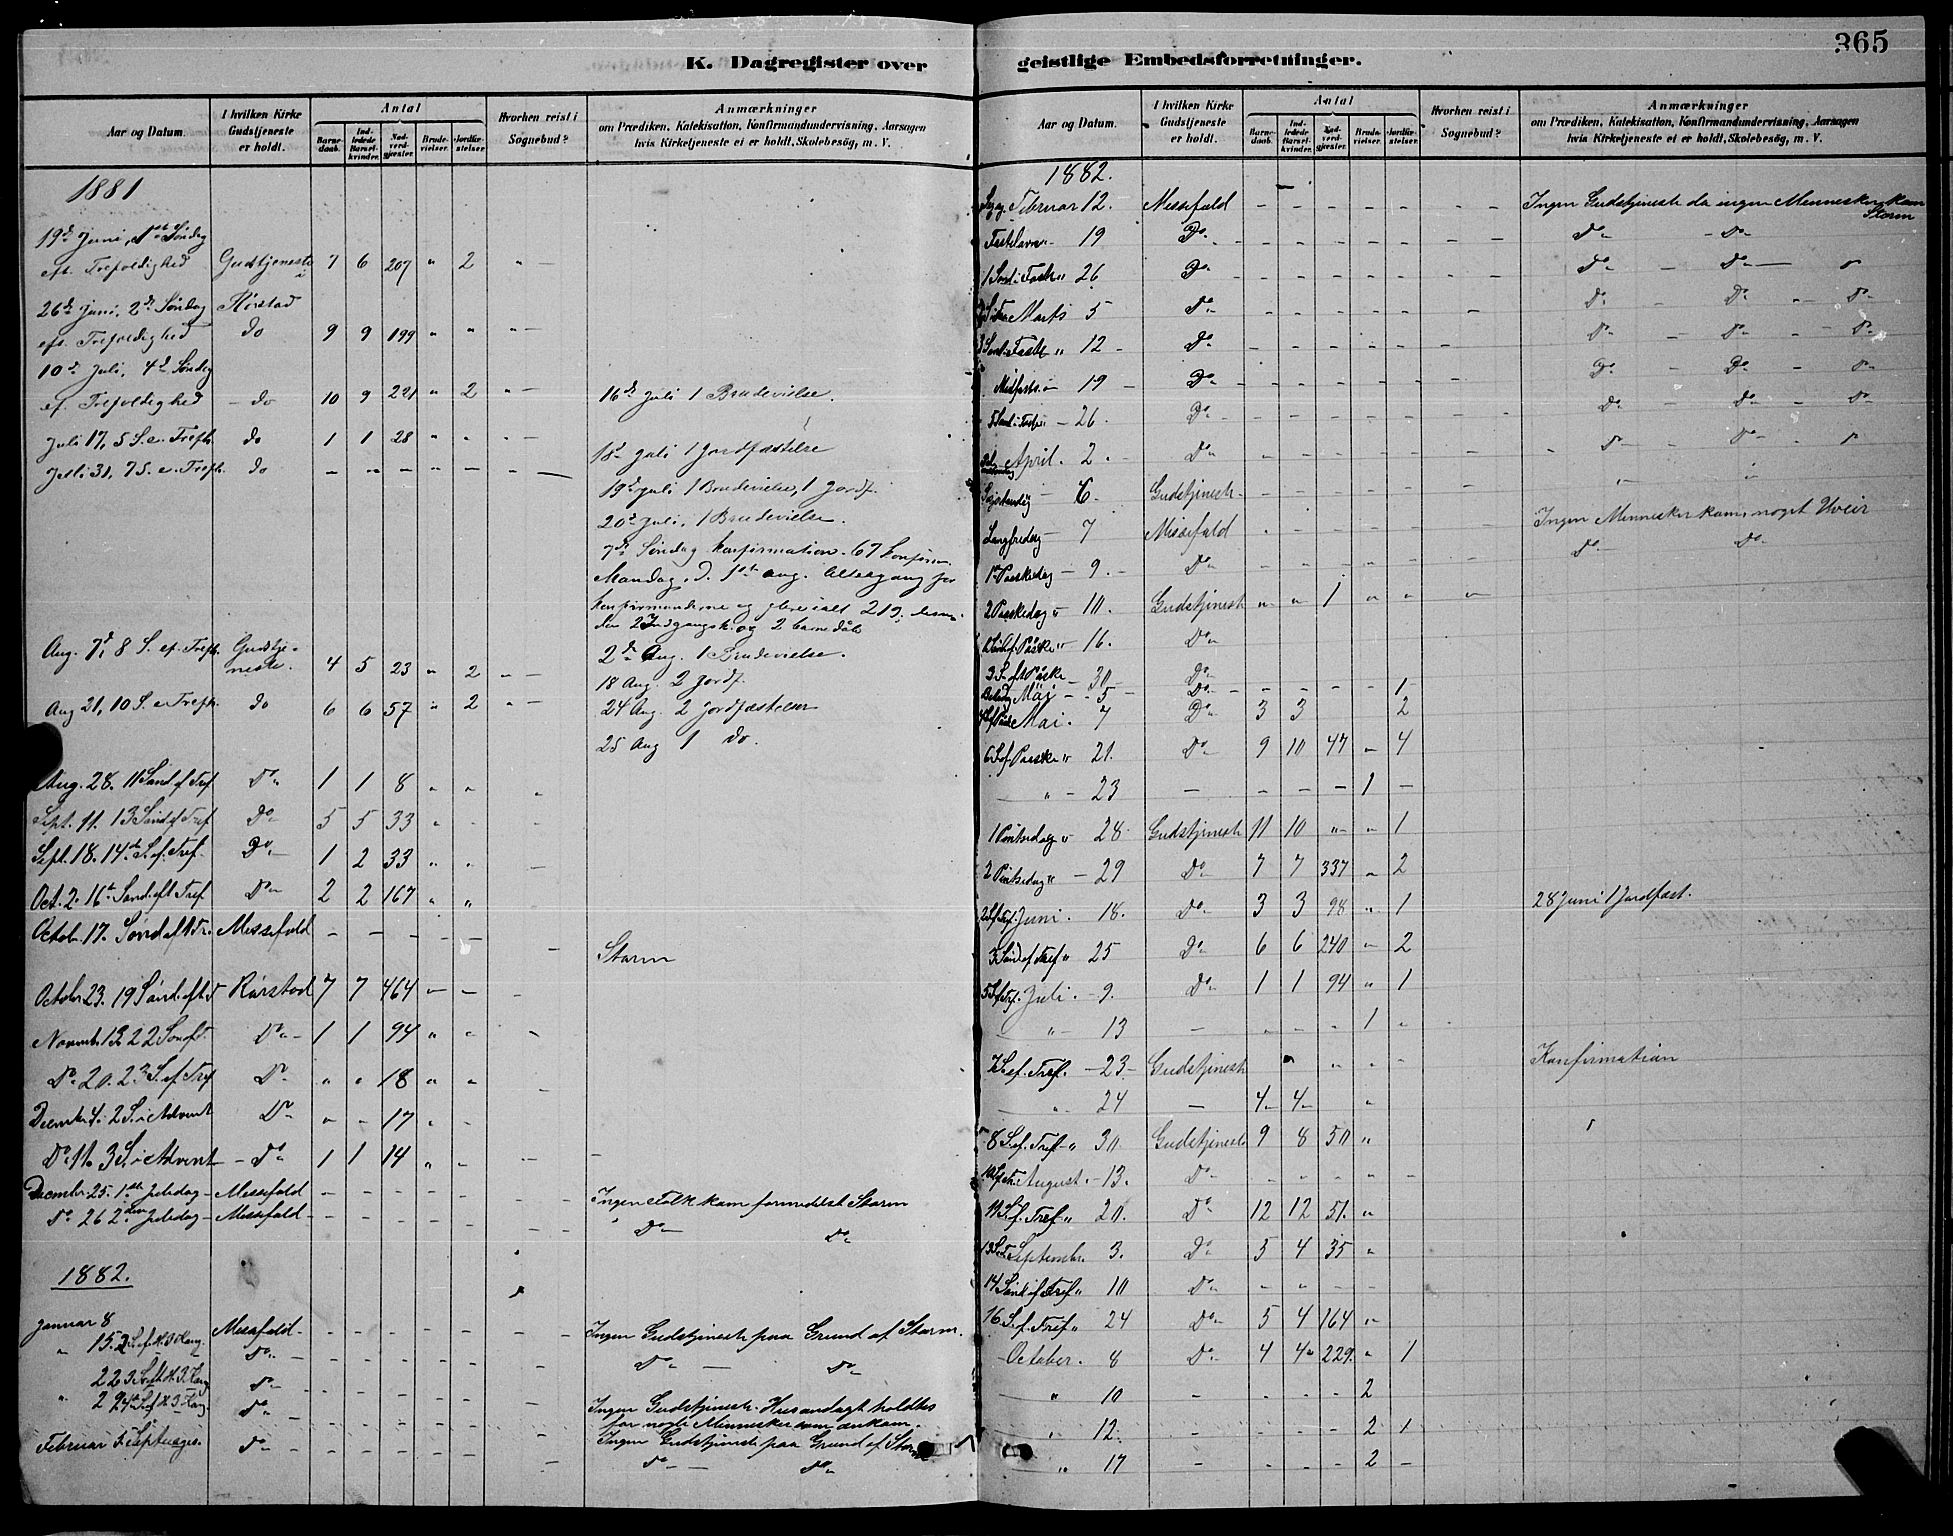 365
K. Dagregister over geistlige Embedsforretninger.
Aar og Datum.
I hvilken Kirke Gudstjeneste er holdt.
Antal
Barne-daab.
Ind-ledede Barsel-kvinder.
Nad-verd-gjester.
Brude-vielser.
Jordfæ-stelser.
Hvorhen reist i Sognebud?
Anmærkninger
om Prædiken, Katekisation, Konfirmandundervisning, Aarsagen
hvis Kirketjeneste ei er holdt, Skolebesøg, m. V.
1881
19de Juni, 1ste Søndag
eft. Trefoldighed Gudstjeneste i 7 6 207 " 2 " –
26de Juni, 2de Søndag Rörstad
eft. Trefoldighed do 9 9 199 " " " –
10de Juli, 4de Søndag
ef. Trefoldighed – do 10 9 221 " 2 " – 16de Juli 1 Brudevielse.
Juli 17, 5 S. e. Trefh. do 1 1 28 " " " –
18de Juli 1 Jordfæstelse
Juli 31, 7 S. e. Trefh. do – – – – " –
19de Juli 1 Brudevielse, 1 Jordf.
20de Juli, 1 Brudevielse.
7de Søndag Konfirmation. 67 Konfirm.
Mandag d. 1ste Aug. Altergang for
Konfirmanderne og flere ialt 213,
2 Indgangsk. og 2 barnedåb
Aug. 7de, 8 S. ef. Trefh. Gudstje-
neste. 4 5 23 " 2 " – 2de Aug. 1 Brudevielse.
18 Aug. 2 Jordf.
Aug 21, 10 S. e Trefh. do 6 6 57 " 2 " – 24 Aug. 2 Jordfæstelser
25 Aug 1 do.
Aug. 28. 11 Sönd. ef Tref Do 1 1 8 " " "
Sept. 11. 13 Sönd ef Tref Do 5 5 33 " – –
Sept. 18. 14de S. ef. Tref. Do 1 2 33 " " –
Oct. 2. 16de Sönd. eft Tref Do 2 2 167 " "
Octob. 17. Sønd eft Tr. Messefald – – – – – – Storm
October 23. 19 Sönd. eft. T Rörstad 7 7 464 – – –
Novembr. 13. 22 Sön eft. Do 1 1 94 " " –
Do 20. 23 S. ef Tref Do " " 18 " " –
Decembr 4. 2 S. i Advent Do " " 17 " –
Do 11. 3 S. i Advent – Do 1 1 14 " – – –
Decembr. 25. 1ste Juledag – Messefald – – – – – – Ingen Folk kom formedelst Storm
Do 26 2den Juledag – Messefald – – – – – – Do Do
1882.
Januar 8 Messefald – – – – – – – Ingen Gudstjeneste paa Grund af Storm.
" 15. 2 S. ef. H. 3 Kong. Do – – – – – – Do – Do
22 3 S. eft H. 3 Kong Do – – – – – –
" 29 4de S. ef H 3 Kong. Do – – – – – – Ingen Gudstjeneste. Husandagt holdtes
for nogle Mennesker som ankom.
Februar 5 Septuages. Do – – – – – – Ingen Gudstjeneste paa Grund af Storm
Do – Do
Aar og Datum.
I hvilken Kirke Gudstjeneste er holdt.
Antal
Barne-daab.
Ind-ledede Barsel-kvinder.
Nad-verd-gjester.
Brude-vielser.
Jordfæ-stelser.
Hvorhen reist i Sognebud?
Anmærkninger
om Prædiken, Katekisation, Konfirmandundervisning, Aarsagen
hvis Kirketjeneste ei er holdt, Skolebesøg, m. V.
1882.
Februar 12. Messefald – – – – – – – Ingen Gudstjeneste da ingen Mennesker kom
Storm
Fastelavns – 19 Do – – – – – – – Do – Do
1 Sönd. i Faste " 26 Do – – – – – – – Do – Do – Do
Marts 5 Do – – – – – – Do – Do – Do
3 Sönd. i Faste " 12 – Do – – – – – – Do – Do – Do
Midfaste – 19 – Do – – – – – – – Do – Do – Do
5 Sönd. i Faste – 26. Do – – – – – – – Do – Do – Do
April. 2. – Do – – – – – – Do – Do – Do
Skjærtorsdag – 6. Gudstjenest. – – – – – –
Langfredag – 7 Messefald – – – – – – – Ingen Mennesker kom, noget Uveir
1ste Paaskedag – 9. – Do – – – – – – Do Do
2 Paaskedag " 10. Gudstjenest " " 1 " " "
1 Sönd. ef. Påske " 16. Do
3 S. eft Påske – 30 – Do
Bededag Mai – 5 – Do – – – – – 1
Mai. 7 Do 3 3 2
6 S. ef. Paaske " 21. Do 9 10 47 " 4
" – 23 – – – – 1 –
1 Pintsedag " 28. Gudstjenest 11 10 " " 1
2 Pintsedag " – 29 Do 7 7 337 " 2
Juni. 18. Do 3 3 98 " 1 28 Juni 1 Jordfæst.
3 Sönd ef Tref " 25 Do 6 6 240 " 2
Juli. – 9. Do 1 1 94 " 1
" – 13 – – – – 1 "
7 S. ef. Tref. – 23 – Gudstjenest " " – Konfirmation
" 24 – 4 4 "
8 S. ef. Tref – " 30. Gudstjeneste 9 8 50 "
August. – 13. Do " " " " –
11 S. f. Tref " 20. Do 12 12 51. "
Septembr. 3. Do 5 4 35 "
14 Sönd ef Tref " 10 Do – " – –
16 S. f. Tref " 24 Do 5 4 164 "
– October. 8 Do 4 4 229. " 1
" 10 – – – – 2
" 12. – – – – 2 1
" 17 – – – – 2 –